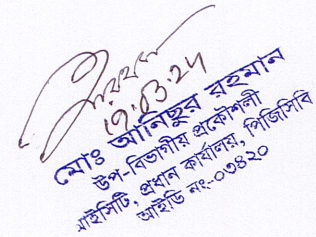 19.03.24
মোঃ আনিছুর রহমান
উপ-বিভাগীয় প্রকৌশলী
আইসিটি, প্রধান কার্যালয়, পিজিসিবি
আইডি নং-০৩৪২০